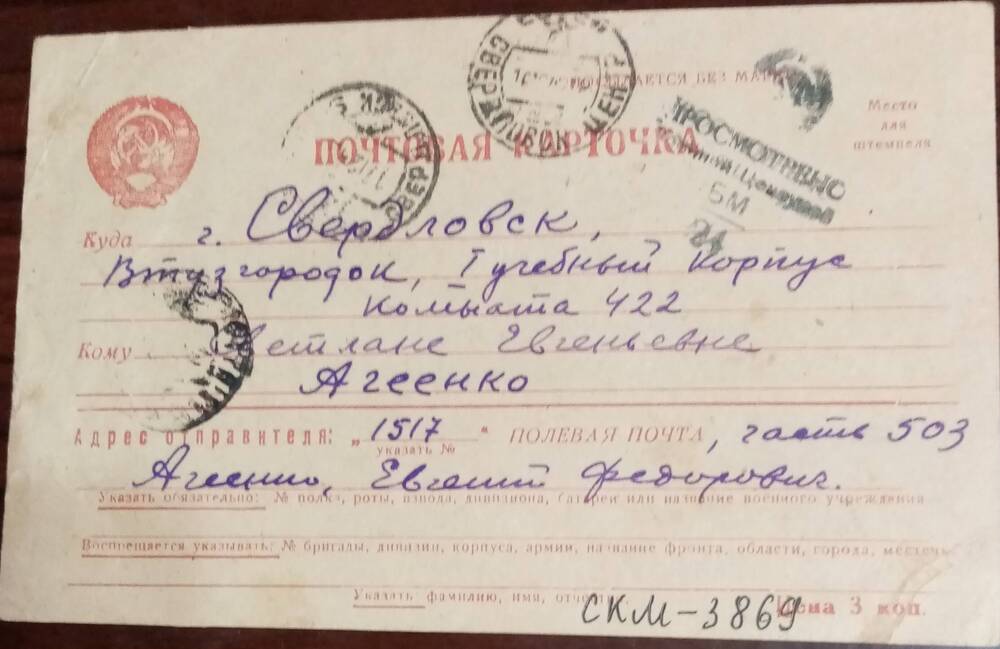 ПОСЫЛАЕТСЯ БЕЗ МАРКИ
Место
для
штемпеля
ПОЧТОВАЯ КАРТОЧКА
ПРОСМОТРЕНО
БМ
Куда г. Свердловск,
Втузгородок, I учебный корпус
Комната 422
Кому Светлане Евгеньевне
Агеенко
Адрес отправителя: „1517“ ПОЛЕВАЯ ПОЧТА, часть 503
указать №
Агеенко, Евгений Федорович.
Указать обязательно: № полка, роты, взвода, дивизиона, батареи или название военного учреждения
Воспрещается указывать: № бригады, дивизии, корпуса, армии, название фронта, области, города, местечка
Указать фамилию, имя, отчество
СКМ-3869
Цена 3 коп.